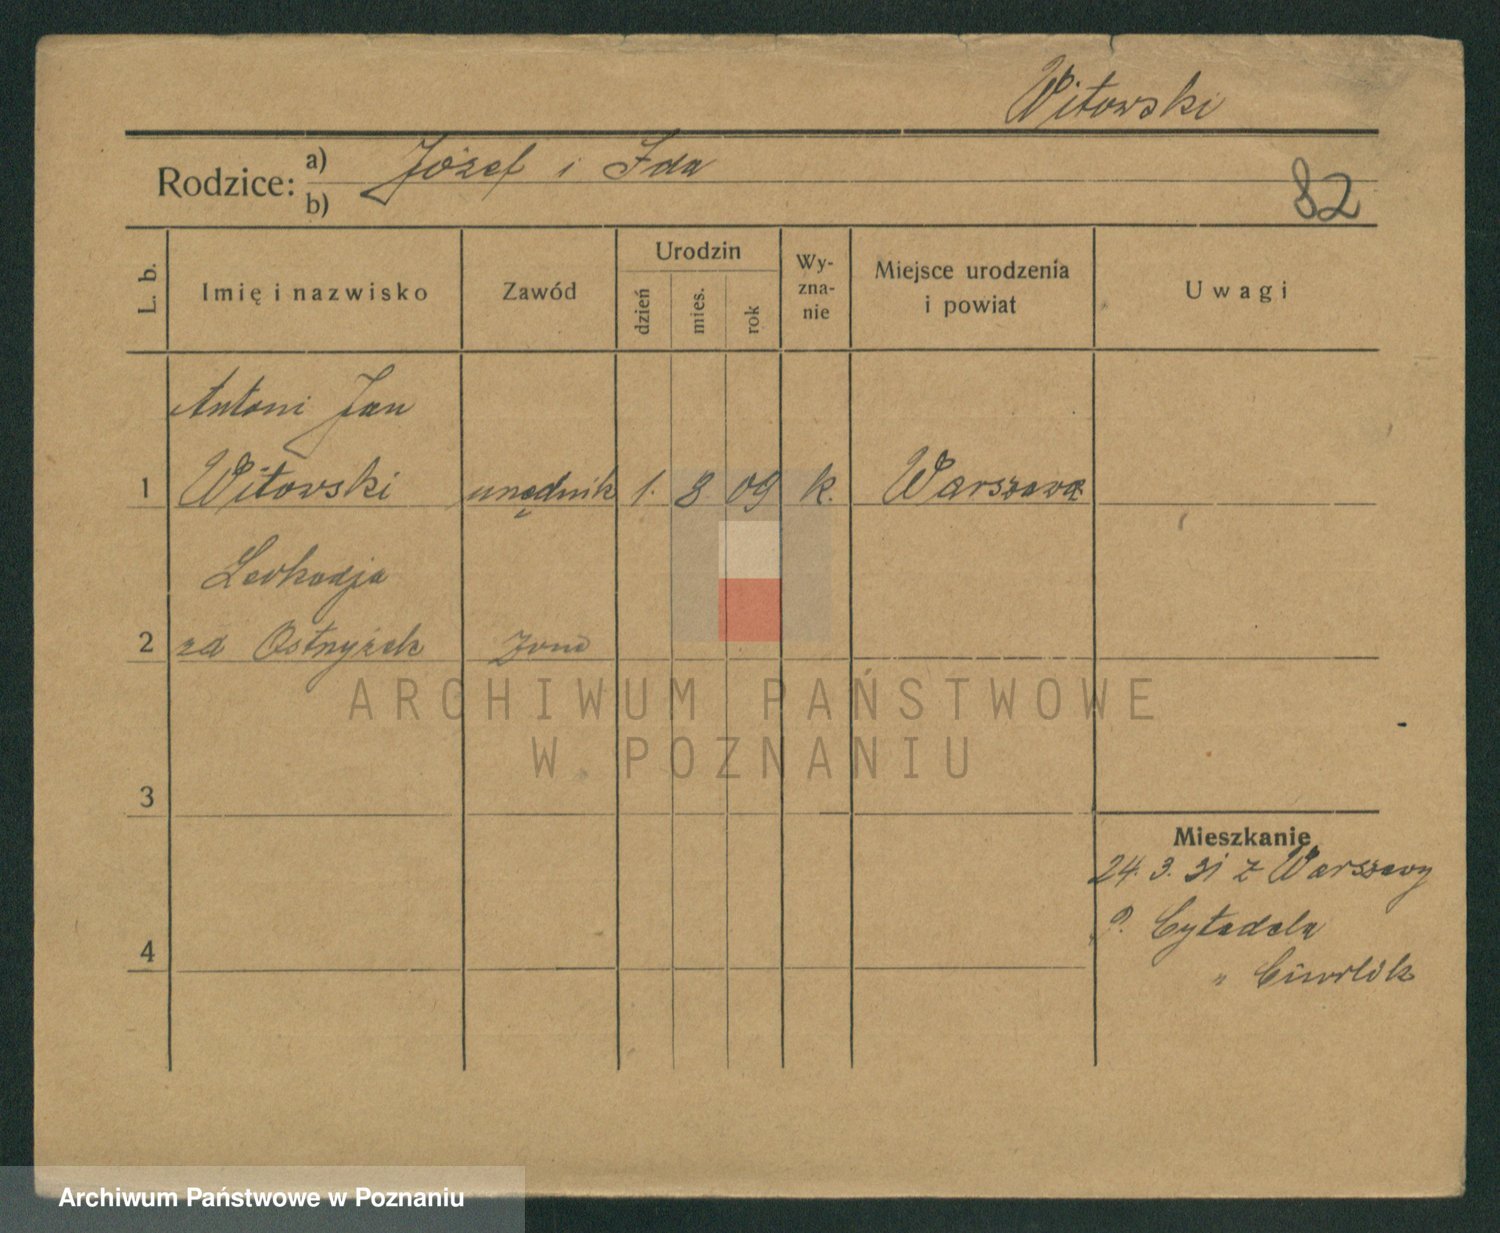 Witowski
Rodzice: a) Józef i Ida
b)
82
L. b.
Imię i nazwisko
Zawód
Urodzin
dzień
mies.
rok
Wy-
zna-
nie
Miejsce urodzenia
i powiat
Uwagi
Antoni Jan
1 Witowski urzędnik 1. 8 09 k. Warszawa
Leokadja
2 zd żona
3
4
Mieszkanie
24. 3. 31 z Warszawy
Cytadela
"
ARCHIWUM PAŃSTWOWE
W POZNANIU
Archiwum Państwowe w Poznaniu